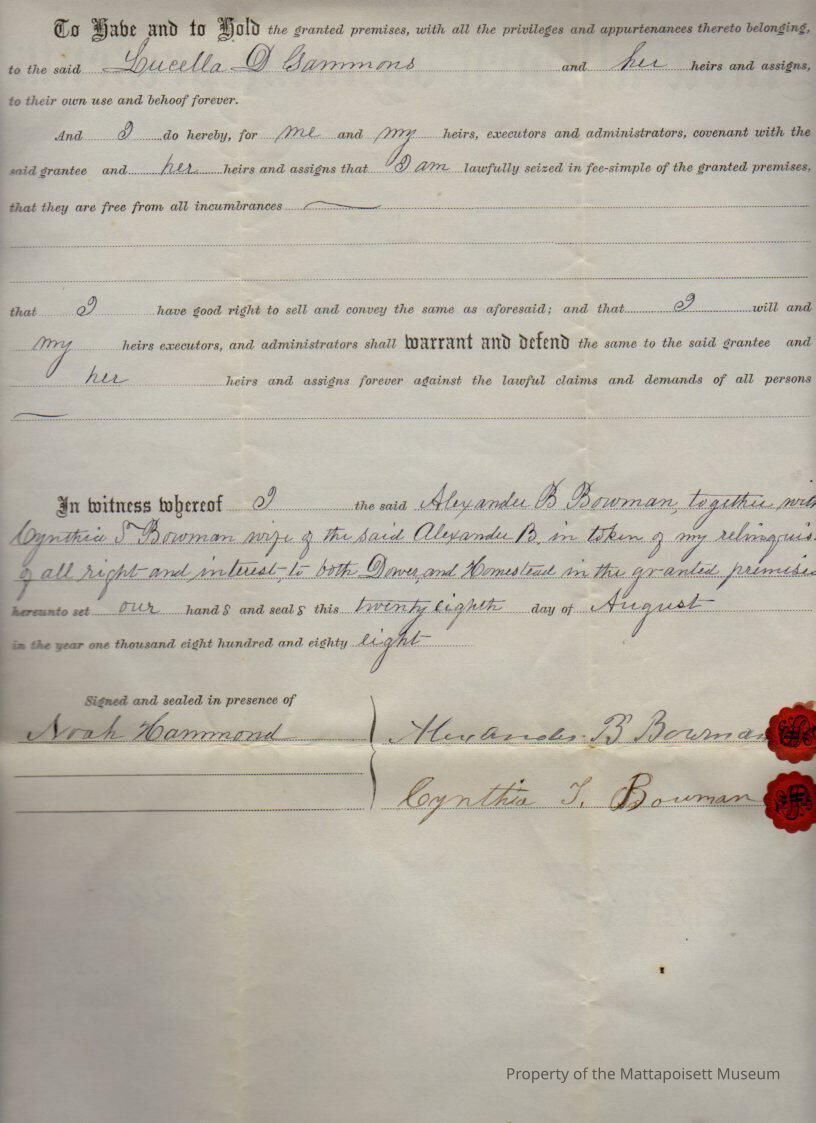 To Have and to Hold the granted premises, with all the privileges and appurtenances thereto belonging,
to the said Lucella D Gammons and her heirs and assigns,
to their own use and behoof forever.
And I do hereby, for me and my heirs, executors and administrators, covenant with the
said grantee and her heirs and assigns that I am lawfully seized in fee-simple of the granted premises,
that they are free from all incumbrances
that I have good right to sell and convey the same as aforesaid; and that I will and
my heirs executors, and administrators shall warrant and defend the same to the said grantee and
her heirs and assigns forever against the lawful claims and demands of all persons
In witness whereof I the said Alexander B Bowman, together with
Cynthia T Bowman wife of the said Alexander B. in token of my relinquis
of all right and interest, to both Dower, and Homestead in the granted premises
hereunto set our hands and seals this twenty eighth day of August
in the year one thousand eight hundred and eighty eight
Signed and sealed in presence of
Noah Hammond
Alexander B Bowman
Cynthia T. Bowman
Property of the Mattapoisett Museum